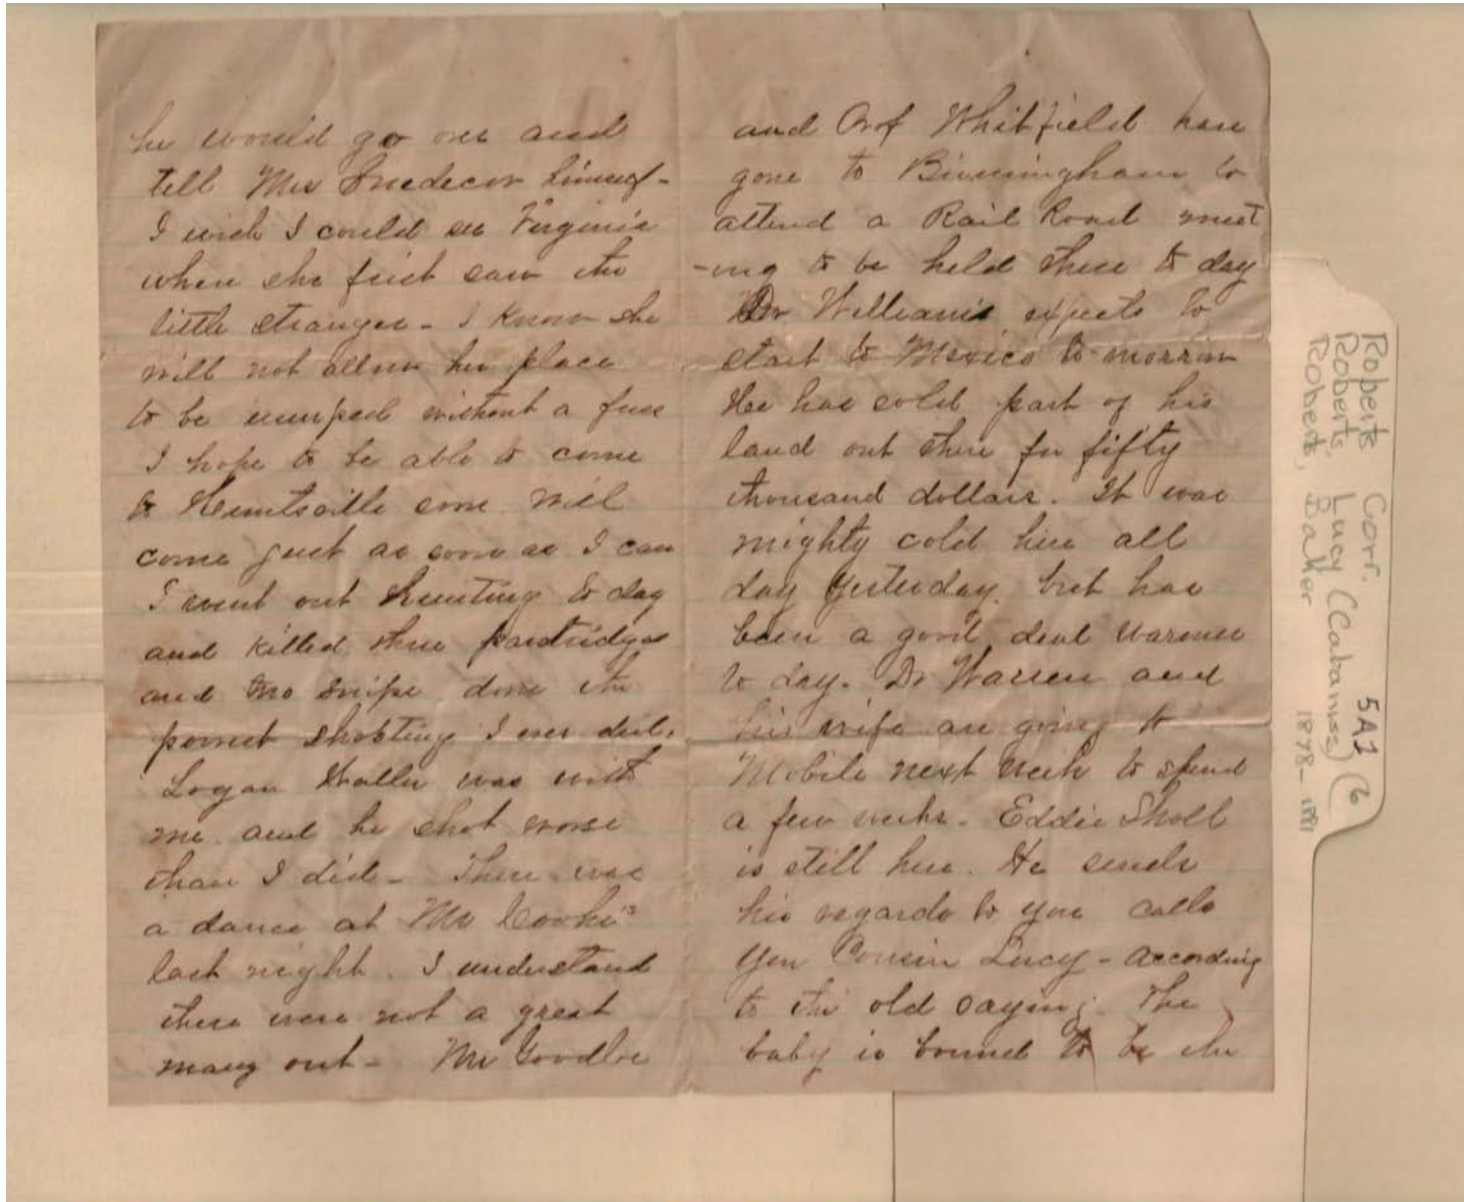 he would go over and
tell Mrs Snedecor himself -
I wish I could see Virginia
when she first saw the
little stranger - I know she
will not allow her place
to be usurped without a fuss
I hope to be able to come
to Huntsville soon. Will
come just as soon as I can
I went out hunting to day
and killed three partridges
and two snipe done the
poorest shooting I ever did.
Logan Waller was with
me and he shot worse
than I did - There was
a dance at Mr Cooke's
last night. I understand
there were not a great
many out - Mr Goodloe
and Prof Whitfield have
gone to Birmingham to
attend a Rail Road meet
-ing to be held there to day
Dr Williams expects to
start to Mexico to morrow
He has sold part of his
land out there for fifty
thousand dollars. It was
mighty cold here all
day yesterday, but has
been a good deal warmer
to day. Dr Warren and
his wife are going to
Mobile next week to spend
a few weeks - Eddie Sholl
is still here. He sends
his regards to you calls
you Cousin Lucy - according
to the old saying. The
baby is bound to be the
Roberts Corr. 5A1 (6
Roberts, Lucy (Cabaniss)
Roberts, Baker 1878-1881